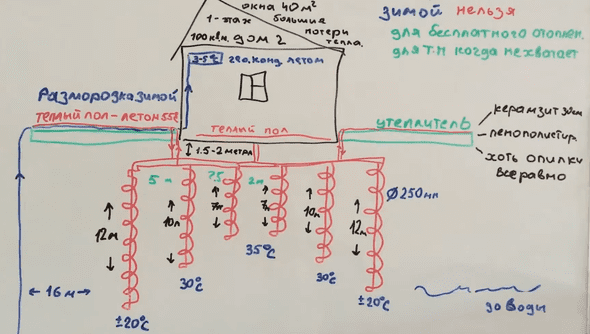 окна 40 м²
1-этаж большие
потери
тепла.
100кв.м. дом 2
3-5°C
гео.конд летом
зимой нельзя
для бесплатного отоплен.
для Т.Н когда не хватает
Разморозка зимой
теплый пол-летом 55°
теплый пол
утеплитель
керамзит 30см
пенополистир
хоть опилки
всеравно
1.5-2 метра
5м
2.5
2м
Ø250мм
12м
10м
7м
7м
10м
12м
35°C
30°C
30°C
16м
±20°C
±20°C
до води